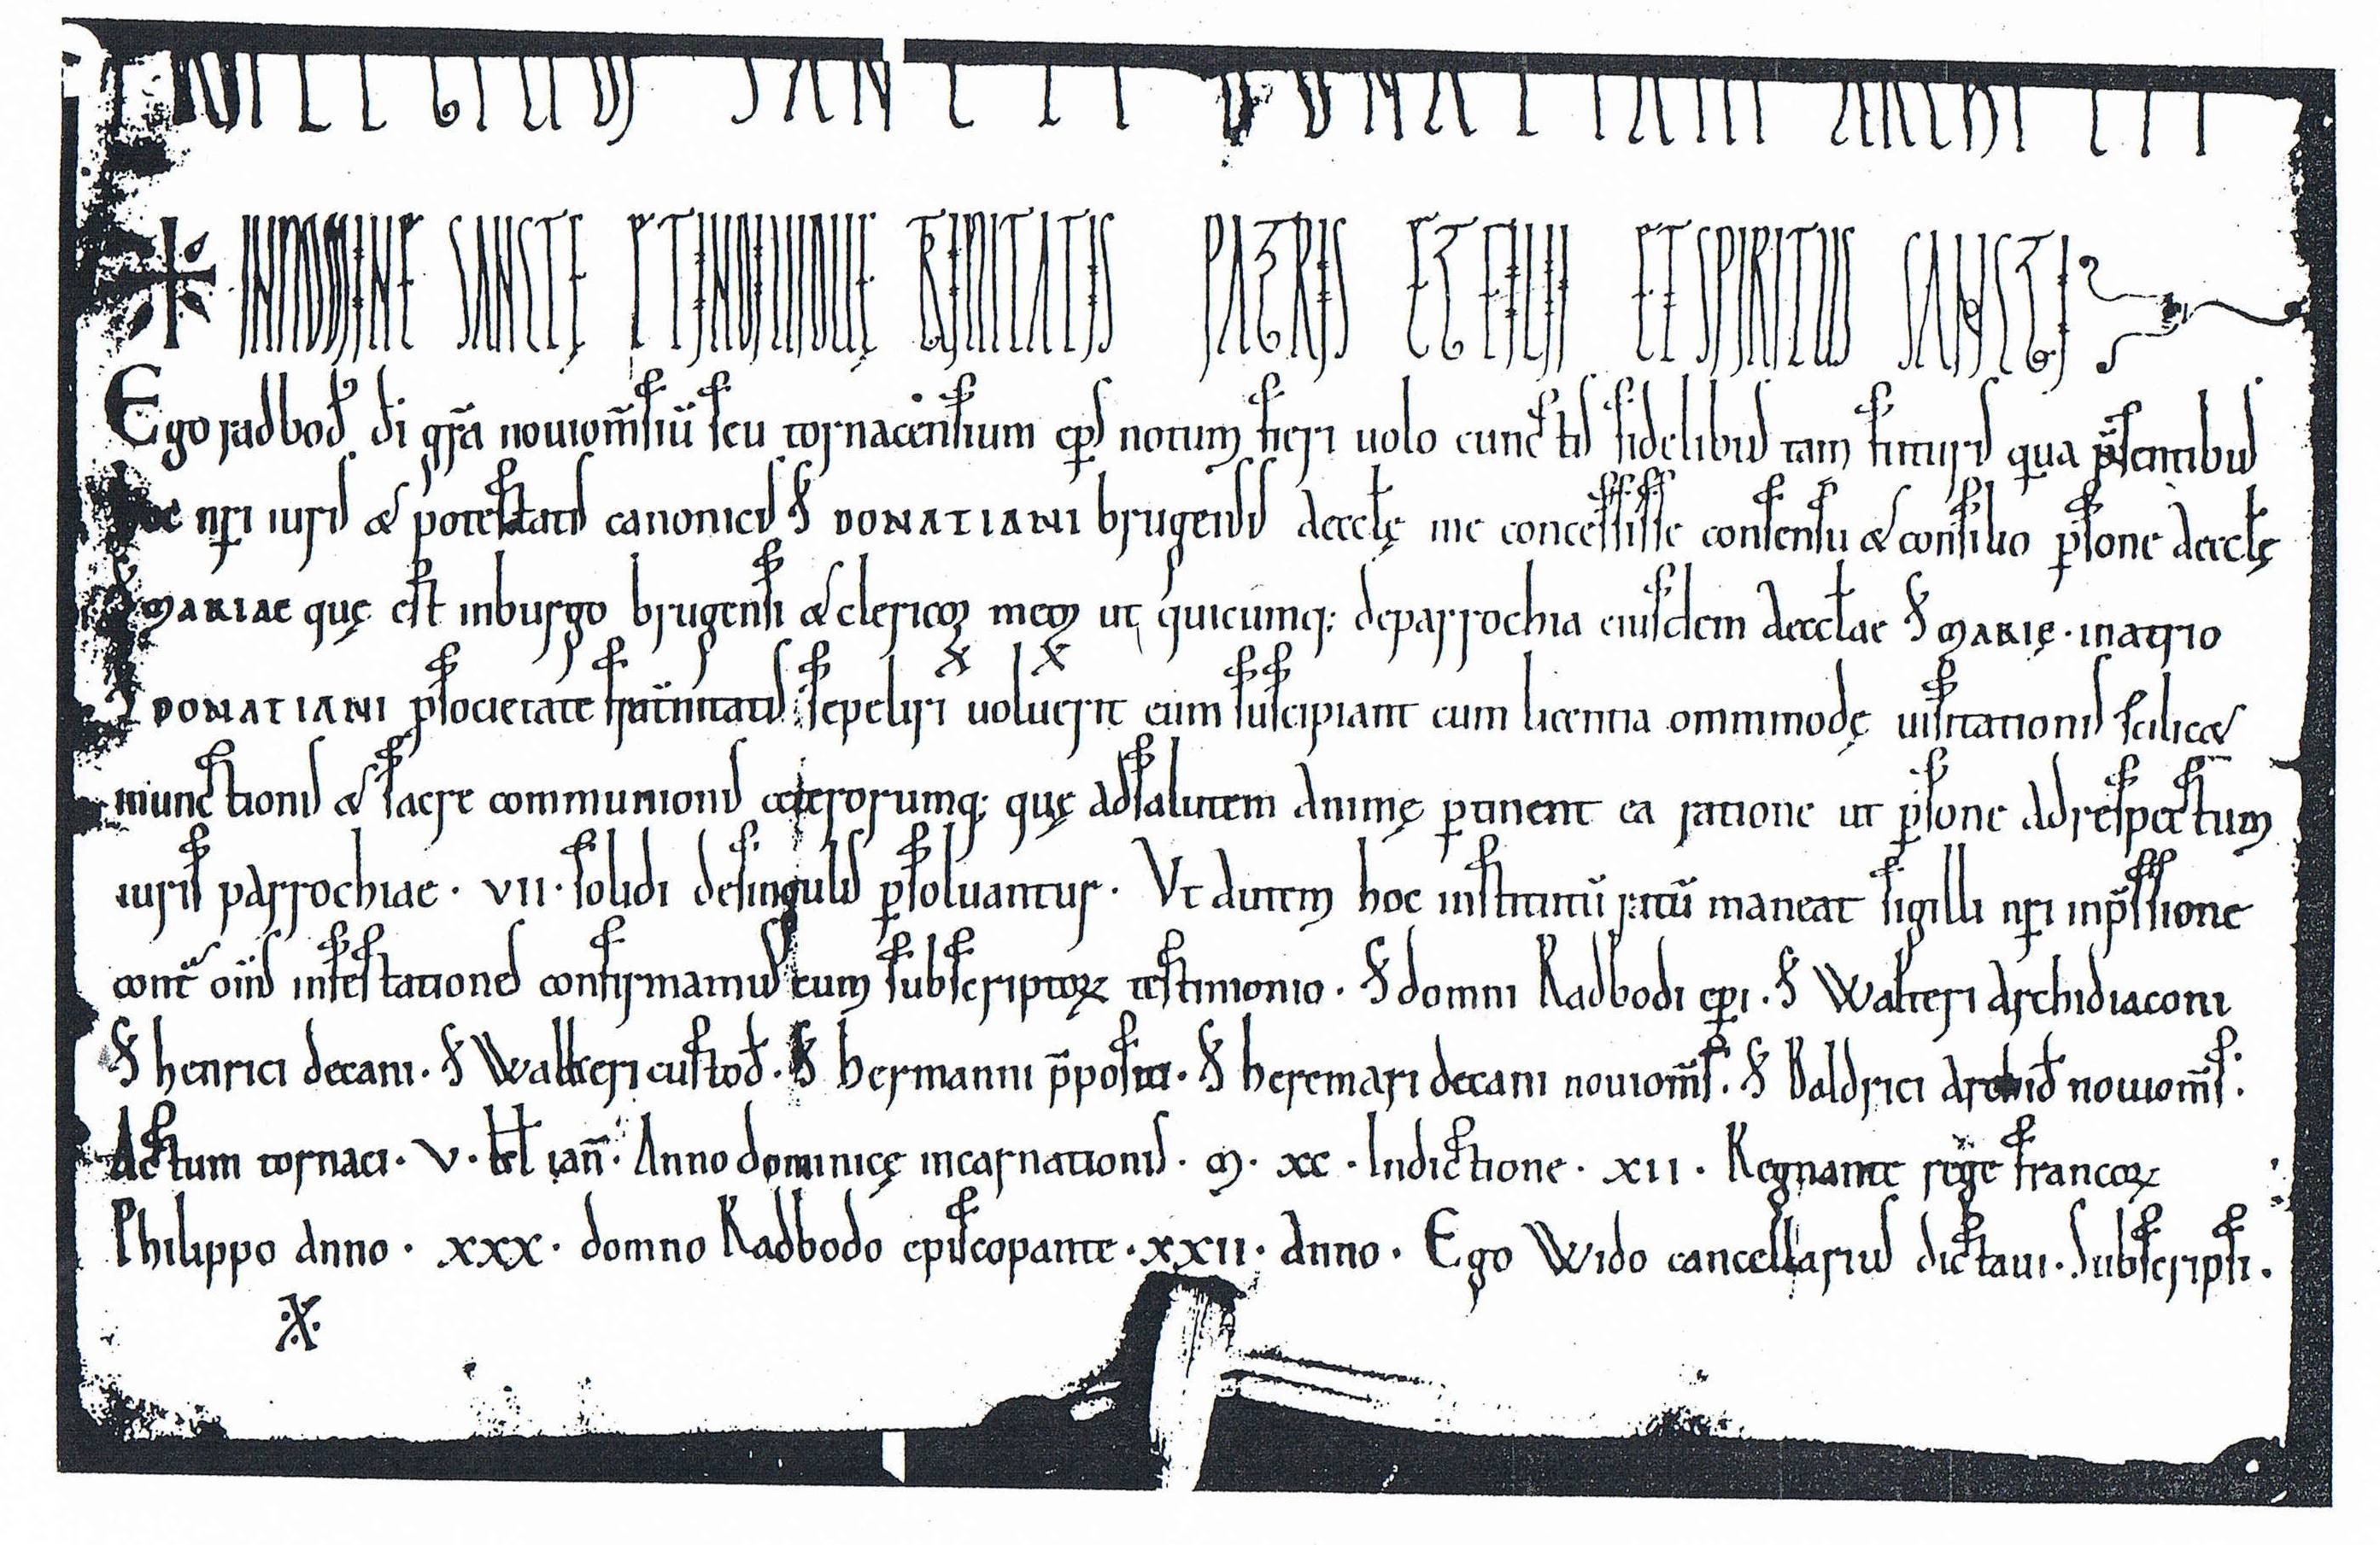 SANCTI DONATIANI ARCHI
IN NOMINE SANCTĘ ET INDIVIDUĘ TRINITATIS PATRIS ET FILII ET SPIRITUS SANCTI
Ego radbod' di gr̃a nouiom̃siũ seu tornacensium ep̅s notum fieri uolo cunctis fidelibus tam futuris qua p̃sentibus
hoc nr̅i iuris & potestatis canonicis S̅ DONATIANI brugensis aecclę me concessisse consensu & consilio p̱sone aecclę
S̅ MARIAE quę est inburgo brugensi & clericoꝝ meoꝝ ut quicumq; deparrochia eiusdem aecclae S̅ MARIĘ · inatrio
S̅ DONATIANI p̱societate fraternitatis sepeliri uoluerit eum suscipiant cum licentia ommmodę uisitationis scilic&
inunctionis & sacre communionis ceterorumq; quę adsalutem animę p̱tinent ea ratione ut p̱sone adrespectum
iuris parrochiae · VII · solidi desingulis p̱soluantur · Vt autem hoc institutũ ratũ maneat sigilli nr̅i inp̃ssione
cont̃ oĩis infestationes confirmamus eum subscriptoꝝ testimonio · S̅ domni Radbodi ep̅i · S̅ Walteri archidiaconi
S̅ henrici decani · S̅ Walteri custod' · S̅ hermanni p̃positi · S̅ heremari decani nouiom̃s · S̅ Baldrici archid' nouiom̃s :
Actum tornaci · V · kl̅ iañ · Anno dominicę incarnationis · M · XC · Indictione · XII · Regnante rege francoꝝ
Philippo anno · XXX · domno Radbodo episcopante · XXII · anno · Ego Wido cancellarius dictaui · Subscripsi ·